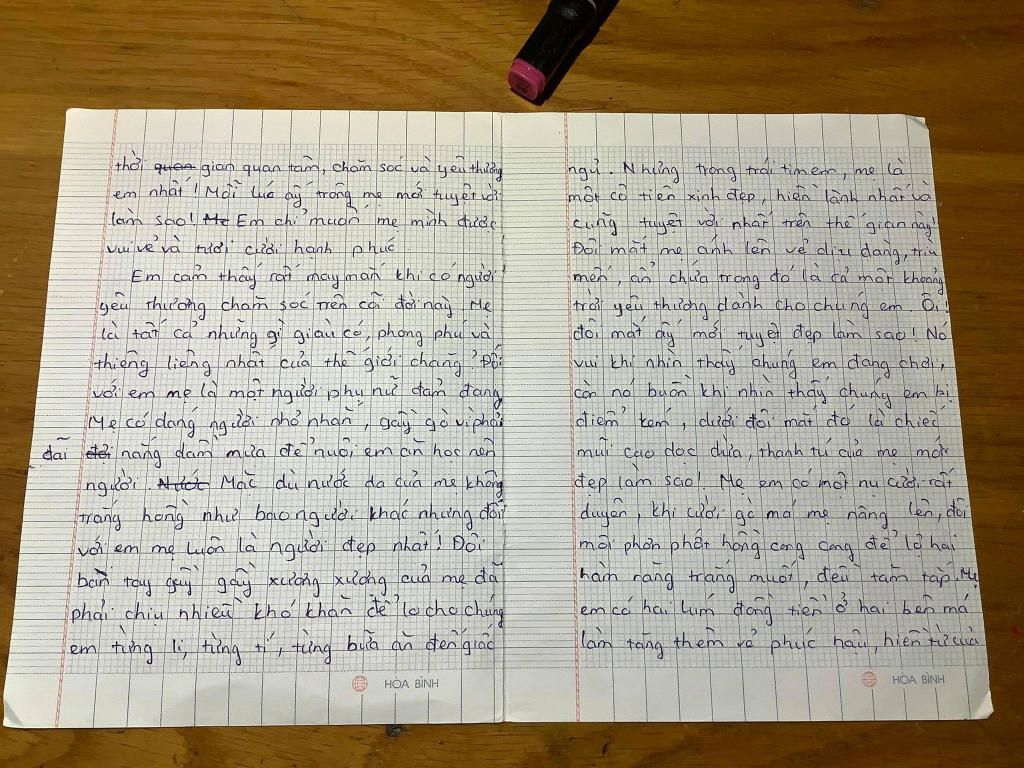 thời quan gian quan tâm, chăm soć và yêu thương
em nhất! Mỗi lúc ấy trông mẹ mới tuyệt vời
làm sao! Mẹ Em chỉ muốn mẹ mình được
vui vẻ và tươi cười hạnh phúc.
Em cảm thấy rất may mắn khi có người
yêu thương chăm sóc trên cõi đời này. Mẹ
là tất cả những gì giàu có, phong phú và
thiêng liêng nhất của thế giới chăng? Đối
với em mẹ là một người phụ nữ đảm đang
Mẹ có dáng người nhỏ nhắn, gầy gò vì phải
dãi nắng dầm mưa để nuôi em ăn học nên
người. Nước Mặc dù nước da của mẹ không
trắng hồng như bao người khác nhưng đối
với em mẹ luôn là người đẹp nhất! Đôi
bàn tay gầy gầy xương xương của mẹ đã
phải chịu nhiều khó khăn để lo cho chúng
em từng li, từng tí, từng bữa ăn đến giấc
ngủ. Nhưng trong trái tim em, mẹ là
một cô tiên xinh đẹp, hiền lành nhất và
cũng tuyệt vời nhất trên thế gian này!
Đôi mắt mẹ ánh lên vẻ dịu dàng, trìu
mến, ẩn chứa trong đó là cả một khoảng
trời yêu thương dành cho chúng em. Ôi!
đôi mắt ấy mới tuyệt đẹp làm sao! Nó
vui khi nhìn thấy chúng em đang chơi,
còn nó buồn khi nhìn thấy chúng em bị
điểm kém, dưới đôi mắt đó là chiếc
mũi cao dọc dừa, thanh tú của mẹ mới
đẹp làm sao! Mẹ em có một nụ cười rất
duyên, khi cười gò má mẹ nâng lên, đôi
môi phơn phớt hồng cong cong để lộ hai
hàm răng trắng muốt, đều tăm tắp. Mẹ
em có hai lúm đồng tiền ở hai bên má
làm tăng thêm vẻ phúc hậu, hiền từ của
HÒA BÌNH
HÒA BÌNH